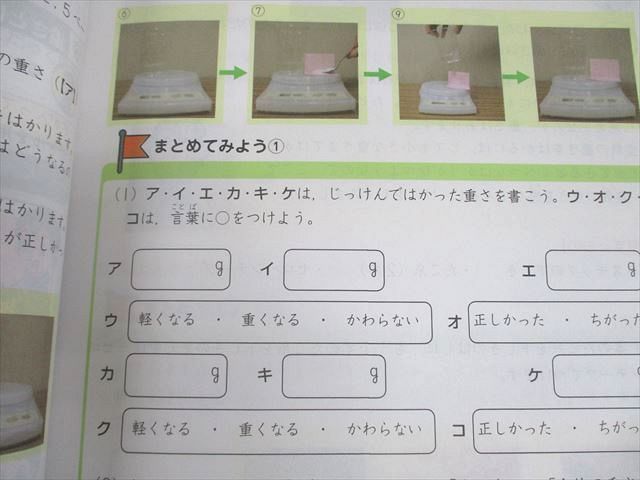 の重さ
はかります。
はどうなるの
はかります。
が正しかっ
⑥
⑦
⑨
まとめてみよう①
(1) ア・イ・エ・カ・キ・ケは，じっけんではかった重さを書こう。ウ・オ・ク・
コは，言葉に○をつけよう。
ことば
ア g イ g エ g
ウ 軽くなる ・ 重くなる ・ かわらない オ 正しかった ・ ちがった
カ g キ g ケ g
ク 軽くなる ・ 重くなる ・ かわらない コ 正しかった ・ ちがっ